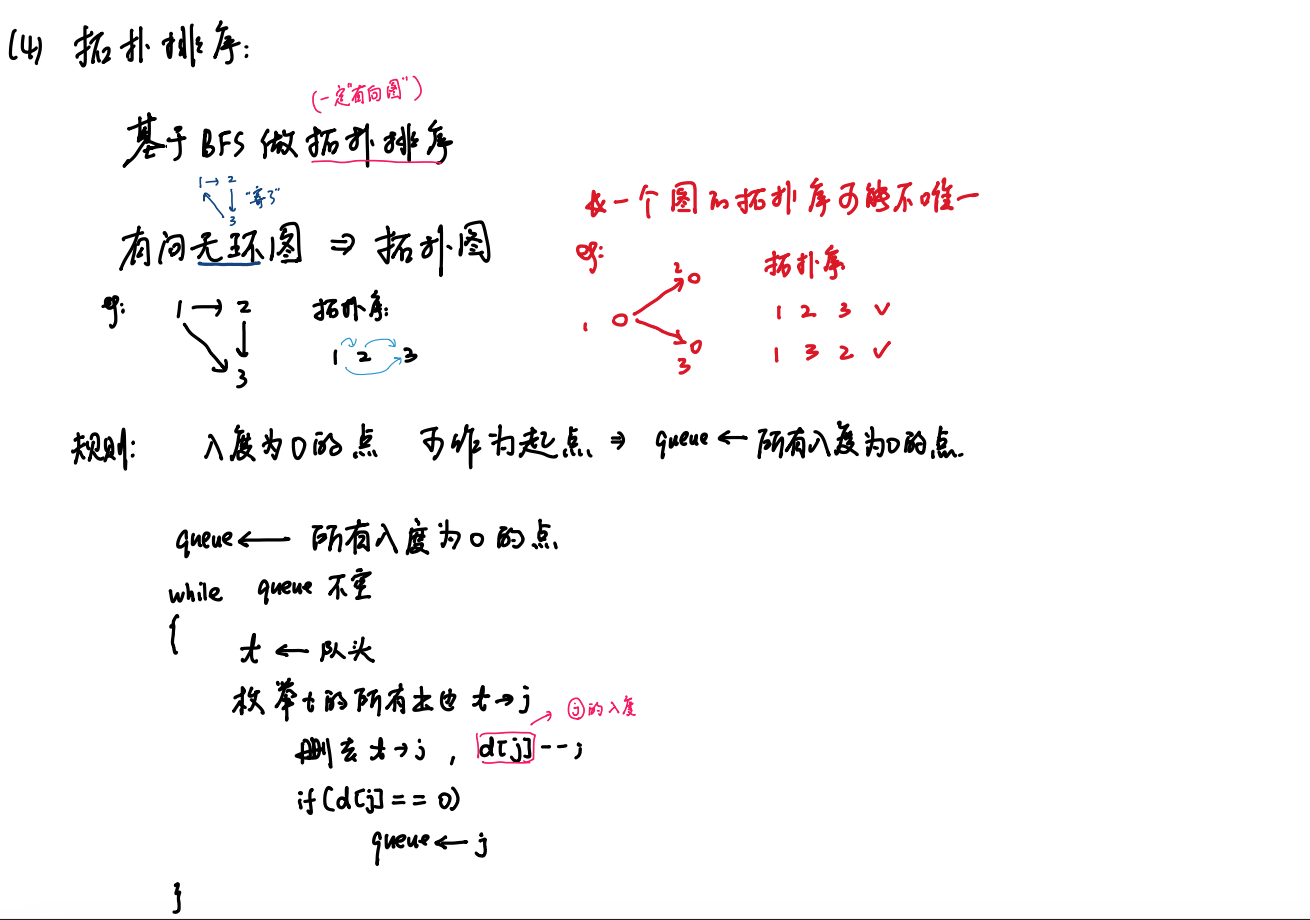 (4) 拓扑排序:
(一定"有向图")
基于 BFS 做拓扑排序
1→2
"寄了"
3
有向无环图 ⇒ 拓扑图
eg:
1 → 2
3
拓扑序:
1 2 3
*一个图的拓扑序可能不唯一
eg:
2
1
3
拓扑序
1 2 3 ✓
1 3 2 ✓
规则: 入度为0的点 可作为起点 ⇒ queue ← 所有入度为0的点.
queue ← 所有入度为0的点
while queue 不空
{
t ← 队头
枚举t的所有出边 t→j
j的入度
删去 t→j , d[j]--;
if(d[j]==0)
queue ← j
}